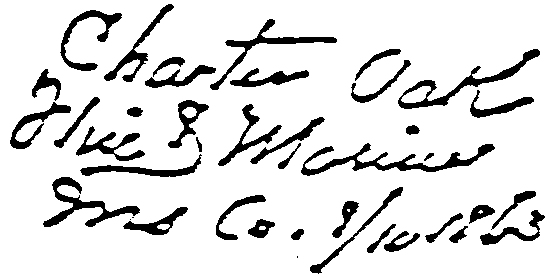 Charter Oak
Fire & Marine
Ins Co. 8/10 1863